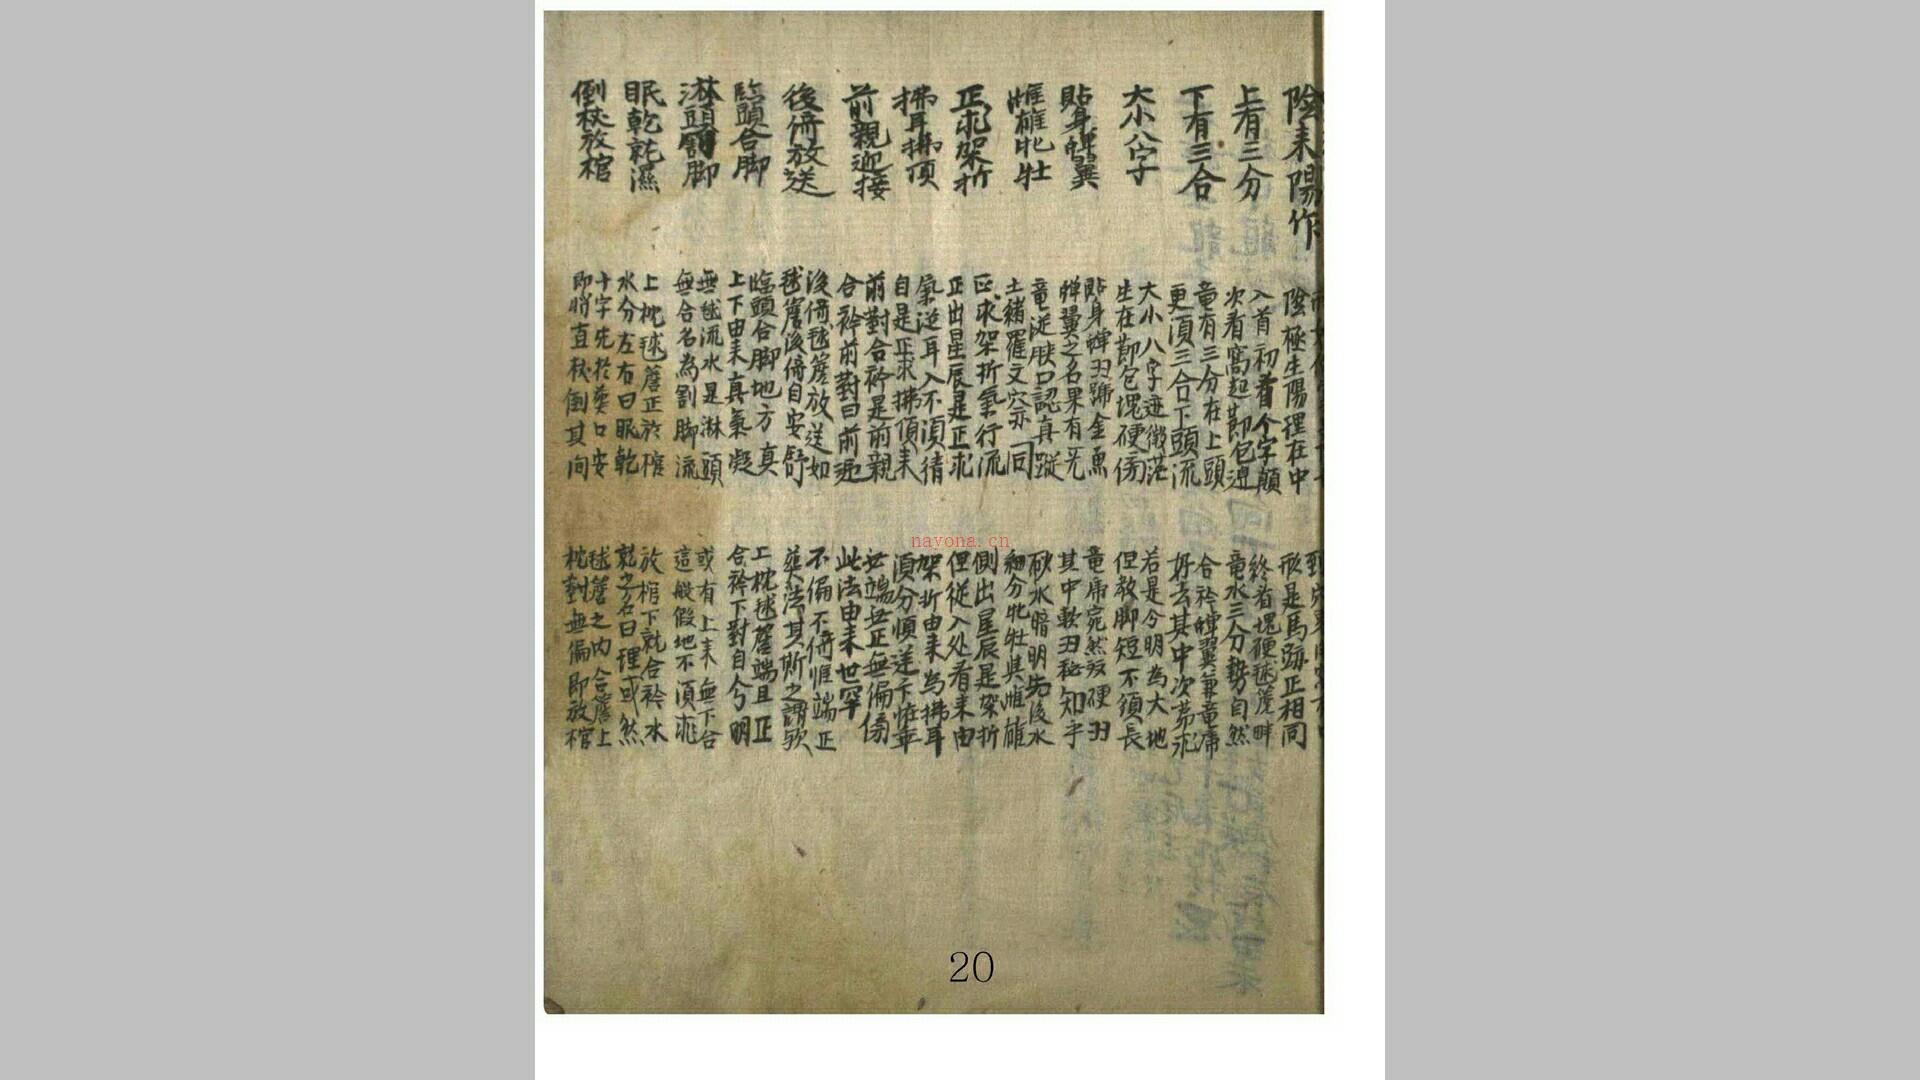 陰来陽作
陰極生陽理在中
形是馬跡正相同
上看三分
入首初看个字顛
次看窩起節包迎
終看塊硬毬簷畔
竜水三分勢自然
下有三合
竜有三分在上頭
更須三合下頭流
合衿蟬翼兼竜虎
好去其中次第求
大小八字
大小八字迹微茫
生在節包塊硬傍
若是今明為大地
但教脚短不須長
貼身蟬翼
貼身蟬羽號金魚
蟬翼之名果有
竜虎宛然
其中軟羽秘知乎
惟雄牝牡
竜逆肤口認真蹤
土縮羅文穴亦同
砍水暗明先後水
細分牝牡與惟雄
正求架折
正求架折氣行流
正出星辰是正求
側出星辰是架折
但從入处看来由
拂耳拂頂
氣逆耳入不須猜
自是正求拂頂来
架折由来為拂耳
須分順逆
前親迎接
前對合衿是前親
合衿前對曰前迎
無端無正無偏傍
此法由来世罕
後倚放送
後倚毬簷放送如
毬簷後倚自安舒
不偏不倚惟端正
葬法其斯之謂欤
臨頭合脚
臨頭合脚地方真
上下由来真氣凝
上枕毬簷端且正
合衿下對自兮明
淋頭割脚
無毬流水是淋頭
無合名為割脚流
或有上来無下合
這般假地不須求
眠乾就濕
上枕毬簷正於棺
水分左右曰眠乾
放棺下就合衿水
就之名曰理或然
倒杖放棺
十字先於葬口安
即将直杖倒其间
毬簷之内合簷上
枕對無偏即放棺
nayona.cn
20